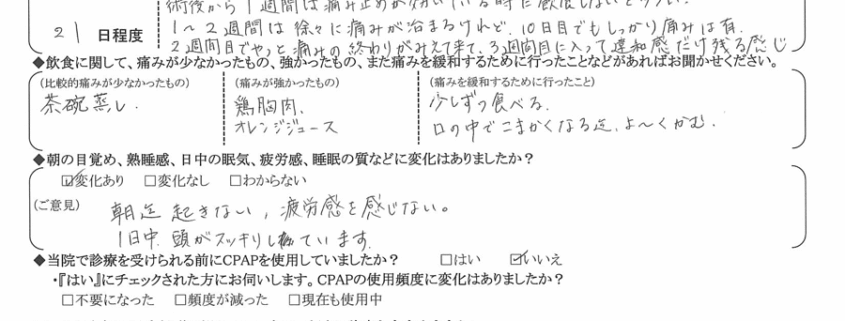 術後から1週間は痛み止めが効いている時に飲食しないとツラい。
21 日程度
1〜2週間は徐々に痛みが治まるけれど、10日目でもしっかり痛みは有。
2週間目でやっと痛みの終わりがみえて来て、3週間目に入って違和感だけ残る感じ
◆飲食に関して、痛みが少なかったもの、強かったもの、また痛みを緩和するために行ったことなどがあればお聞かせください。
(比較的痛みが少なかったもの) (痛みが強かったもの) (痛みを緩和するために行ったこと)
茶碗蒸し. 鶏胸肉. 少しずつ食べる.
オレンジジュース 口の中でこまかくなる迄、よ〜くかむ.
◆朝の目覚め、熟睡感、日中の眠気、疲労感、睡眠の質などに変化はありましたか?
☑変化あり □変化なし □わからない
(ご意見) 朝迄起きない, 疲労感を感じない。
1日中頭がスッキリしています.
◆当院で診療を受けられる前にCPAPを使用していましたか? □はい ☑いいえ
・『はい』にチェックされた方にお伺いします。CPAPの使用頻度に変化はありましたか?
□不要になった □頻度が減った □現在も使用中